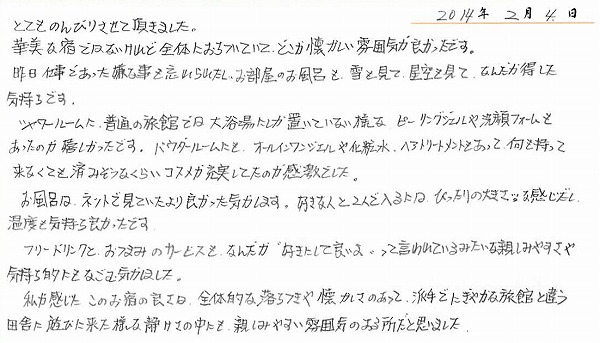 2014年 2月 4日
とてものんびりさせて頂きました。
華美な宿ではないけれど全体におちついていて、どこか懐かしい雰囲気が良かったです。
昨日仕事であった嫌な事も忘れられたし、お部屋のお風呂も、雪を見て、星空を見て、なんだか得した
気持ちです。
シャワールームに、普通の旅館では大浴場にしか置いていない様な ピーリングジェルや洗顔フォームも
あったのが嬉しかったです。パウダールームにも、オールインワンジェルや化粧水、ヘアトリートメントもあって、何も持って
来なくても済みそうなくらいコスメが充実してたのが感激でした。
お風呂は、ネットで見ていたより良かった気がします。好きな人と2人で入るには、ぴったりの大きさな感じだし、
温度も気持ち良かったです。
フリードリンクと、おつまみのサービスも、なんだか "好きにして良いよ" って言われているみたいな親しみやすさや
気持ち的にもなごむ気がしました。
私が感じた このお宿の良さは、全体的な落ちつきや懐かしさのあって、派手でにぎやかな旅館と違う
田舎に遊びに来た様な静けさの中にも、親しみやすい雰囲気のある所だと思いました。